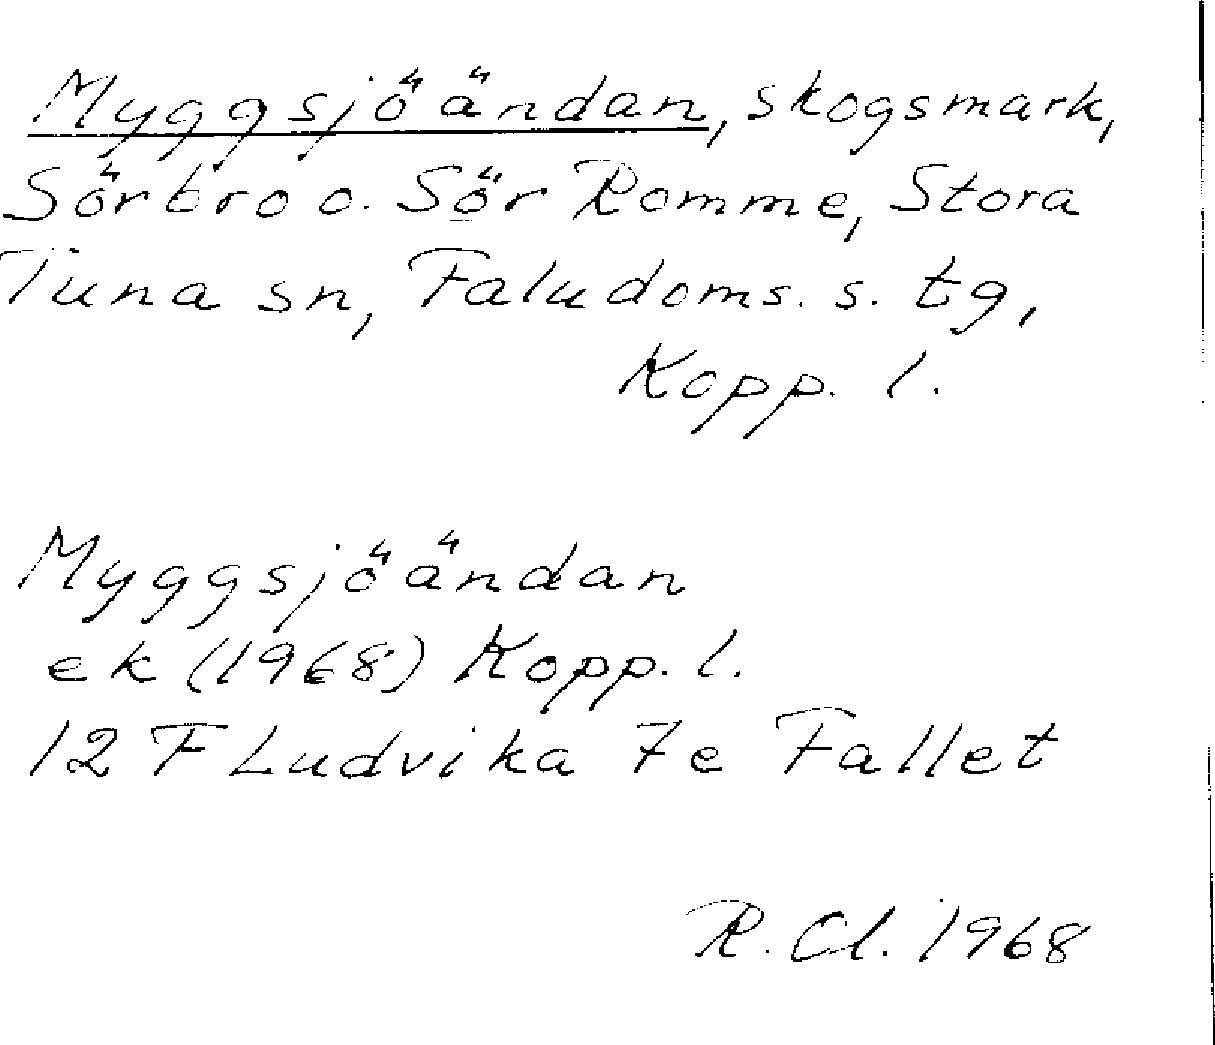 Myggsjöändan, skogsmark,
Sörbro o. Sör Romme, Stora
Tuna sn, Faludoms. s. tg,
Kopp. l.
Myggsjöändan
ek (1968) Kopp. l.
12 F Ludvika 7e Fallet
R. Cl. 1968